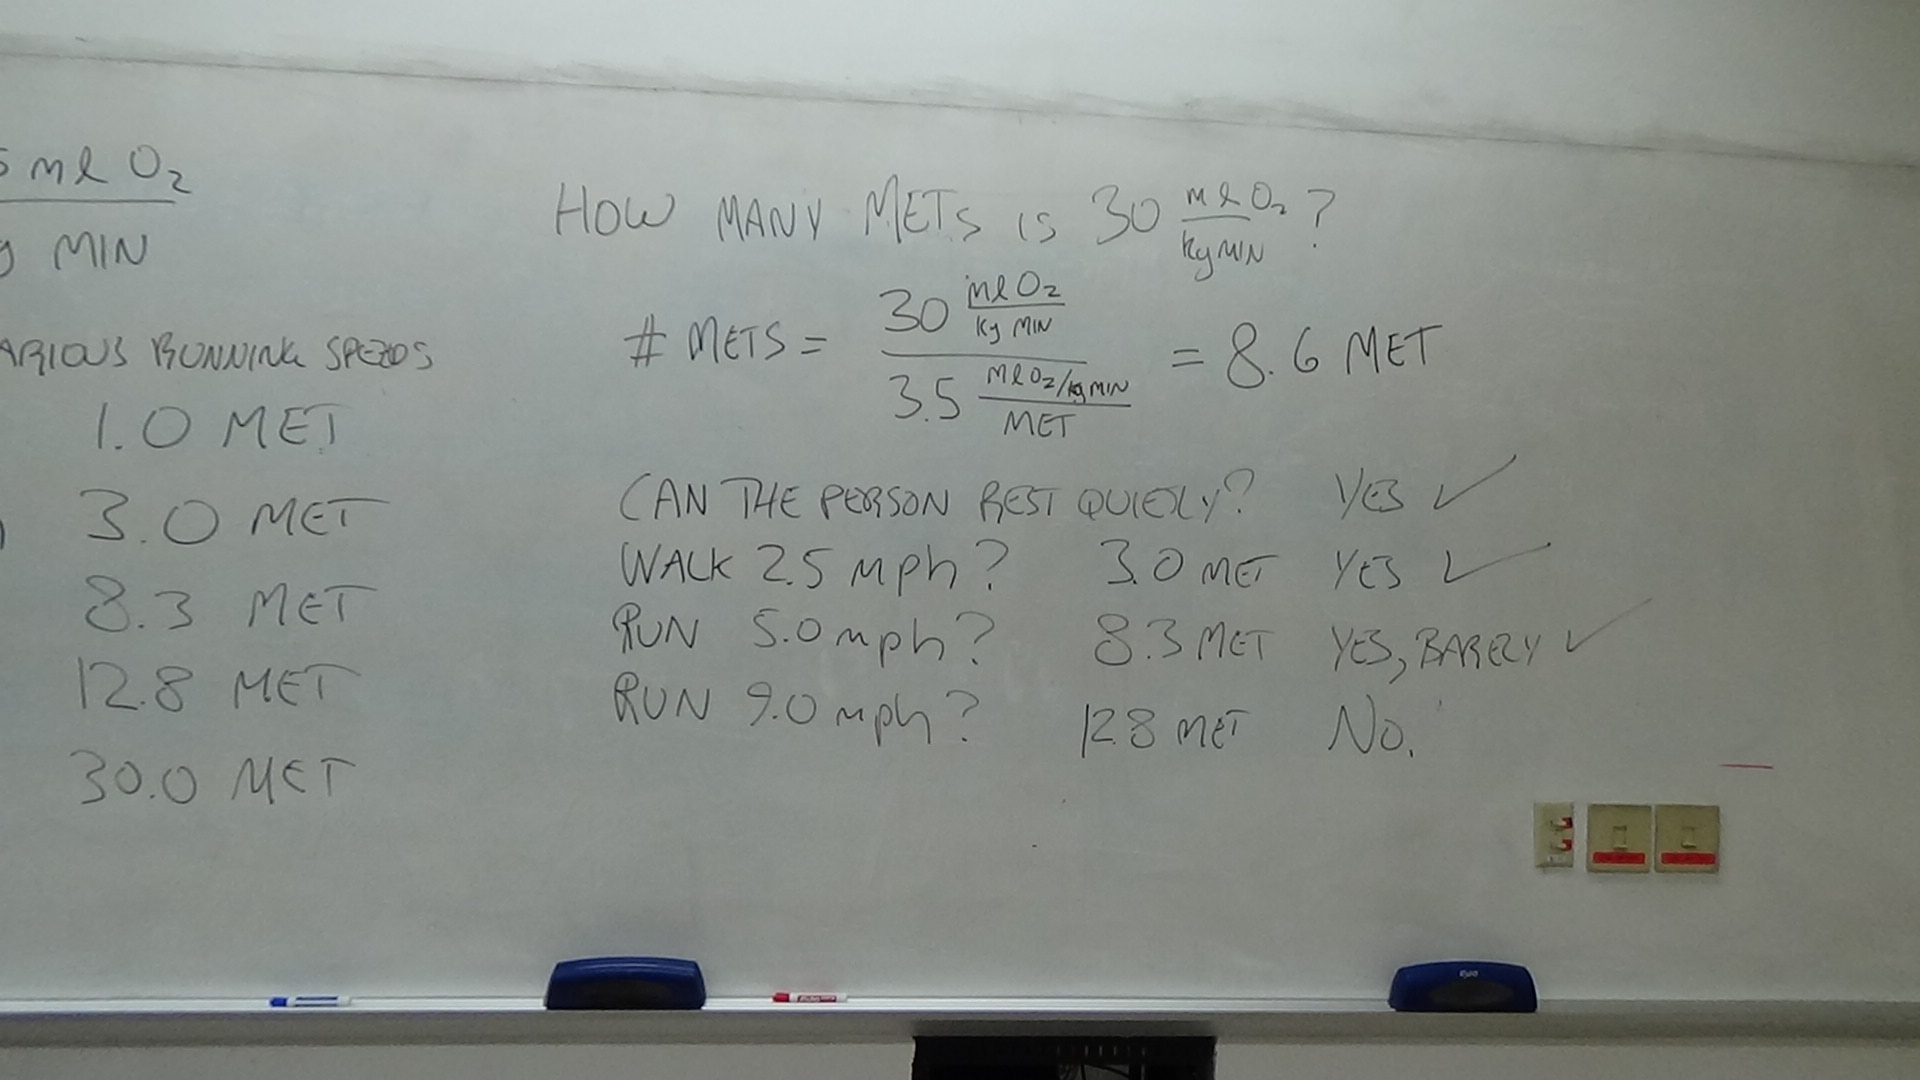 5 ml O₂
g MIN
ARIOUS RUNNING SPEEDS
1.0 MET
3.0 MET
8.3 MET
12.8 MET
30.0 MET
HOW MANY METs IS 30 ml O₂ / kg MIN ?
# METS = 30 ml O₂ / kg MIN / 3.5 ml O₂/kg MIN / MET = 8.6 MET
CAN THE PERSON REST QUIETLY? YES ✓
WALK 2.5 mph? 3.0 MET YES ✓
RUN 5.0 mph? 8.3 MET YES, BARELY ✓
RUN 9.0 mph? 12.8 MET NO.
expo